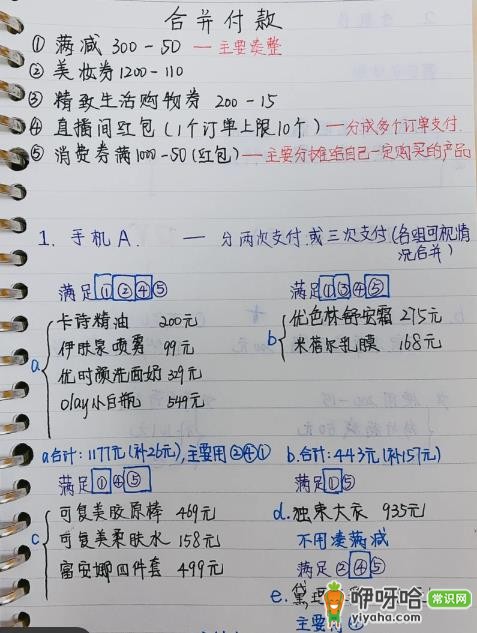 合并付款
① 满减 300-50 — 主要凑整
② 美妆券1200-110
③ 精致生活购物券 200-15
④ 直播间红包(1个订单上限10个) — 分成多个订单支付.
⑤ 消费券满1000-50(红包) — 主要分摊给自己一定购买的产品
1. 手机A. — 分两次支付.或三次支付(各组可视情况合并)
满足①②④⑤
a
卡诗精油 200元
伊肤泉喷雾 99元
优时颜洗面奶 329元
olay小白瓶 549元
满足①③④⑤
b
优色林舒安霜 275元
米蓓尔乳膜 168元
a合计: 1177元(补26元), 主要用②④①
b.合计: 443元(补157元)
满足①④⑤
c
可复美胶原棒 469元
可复美柔肤水 158元
富安娜四件套 499元
满足①⑤
d.独束大衣 935元
不用凑满减
满足②④⑤
e.黛
主要
咿呀哈 常识网
yiyaha.com